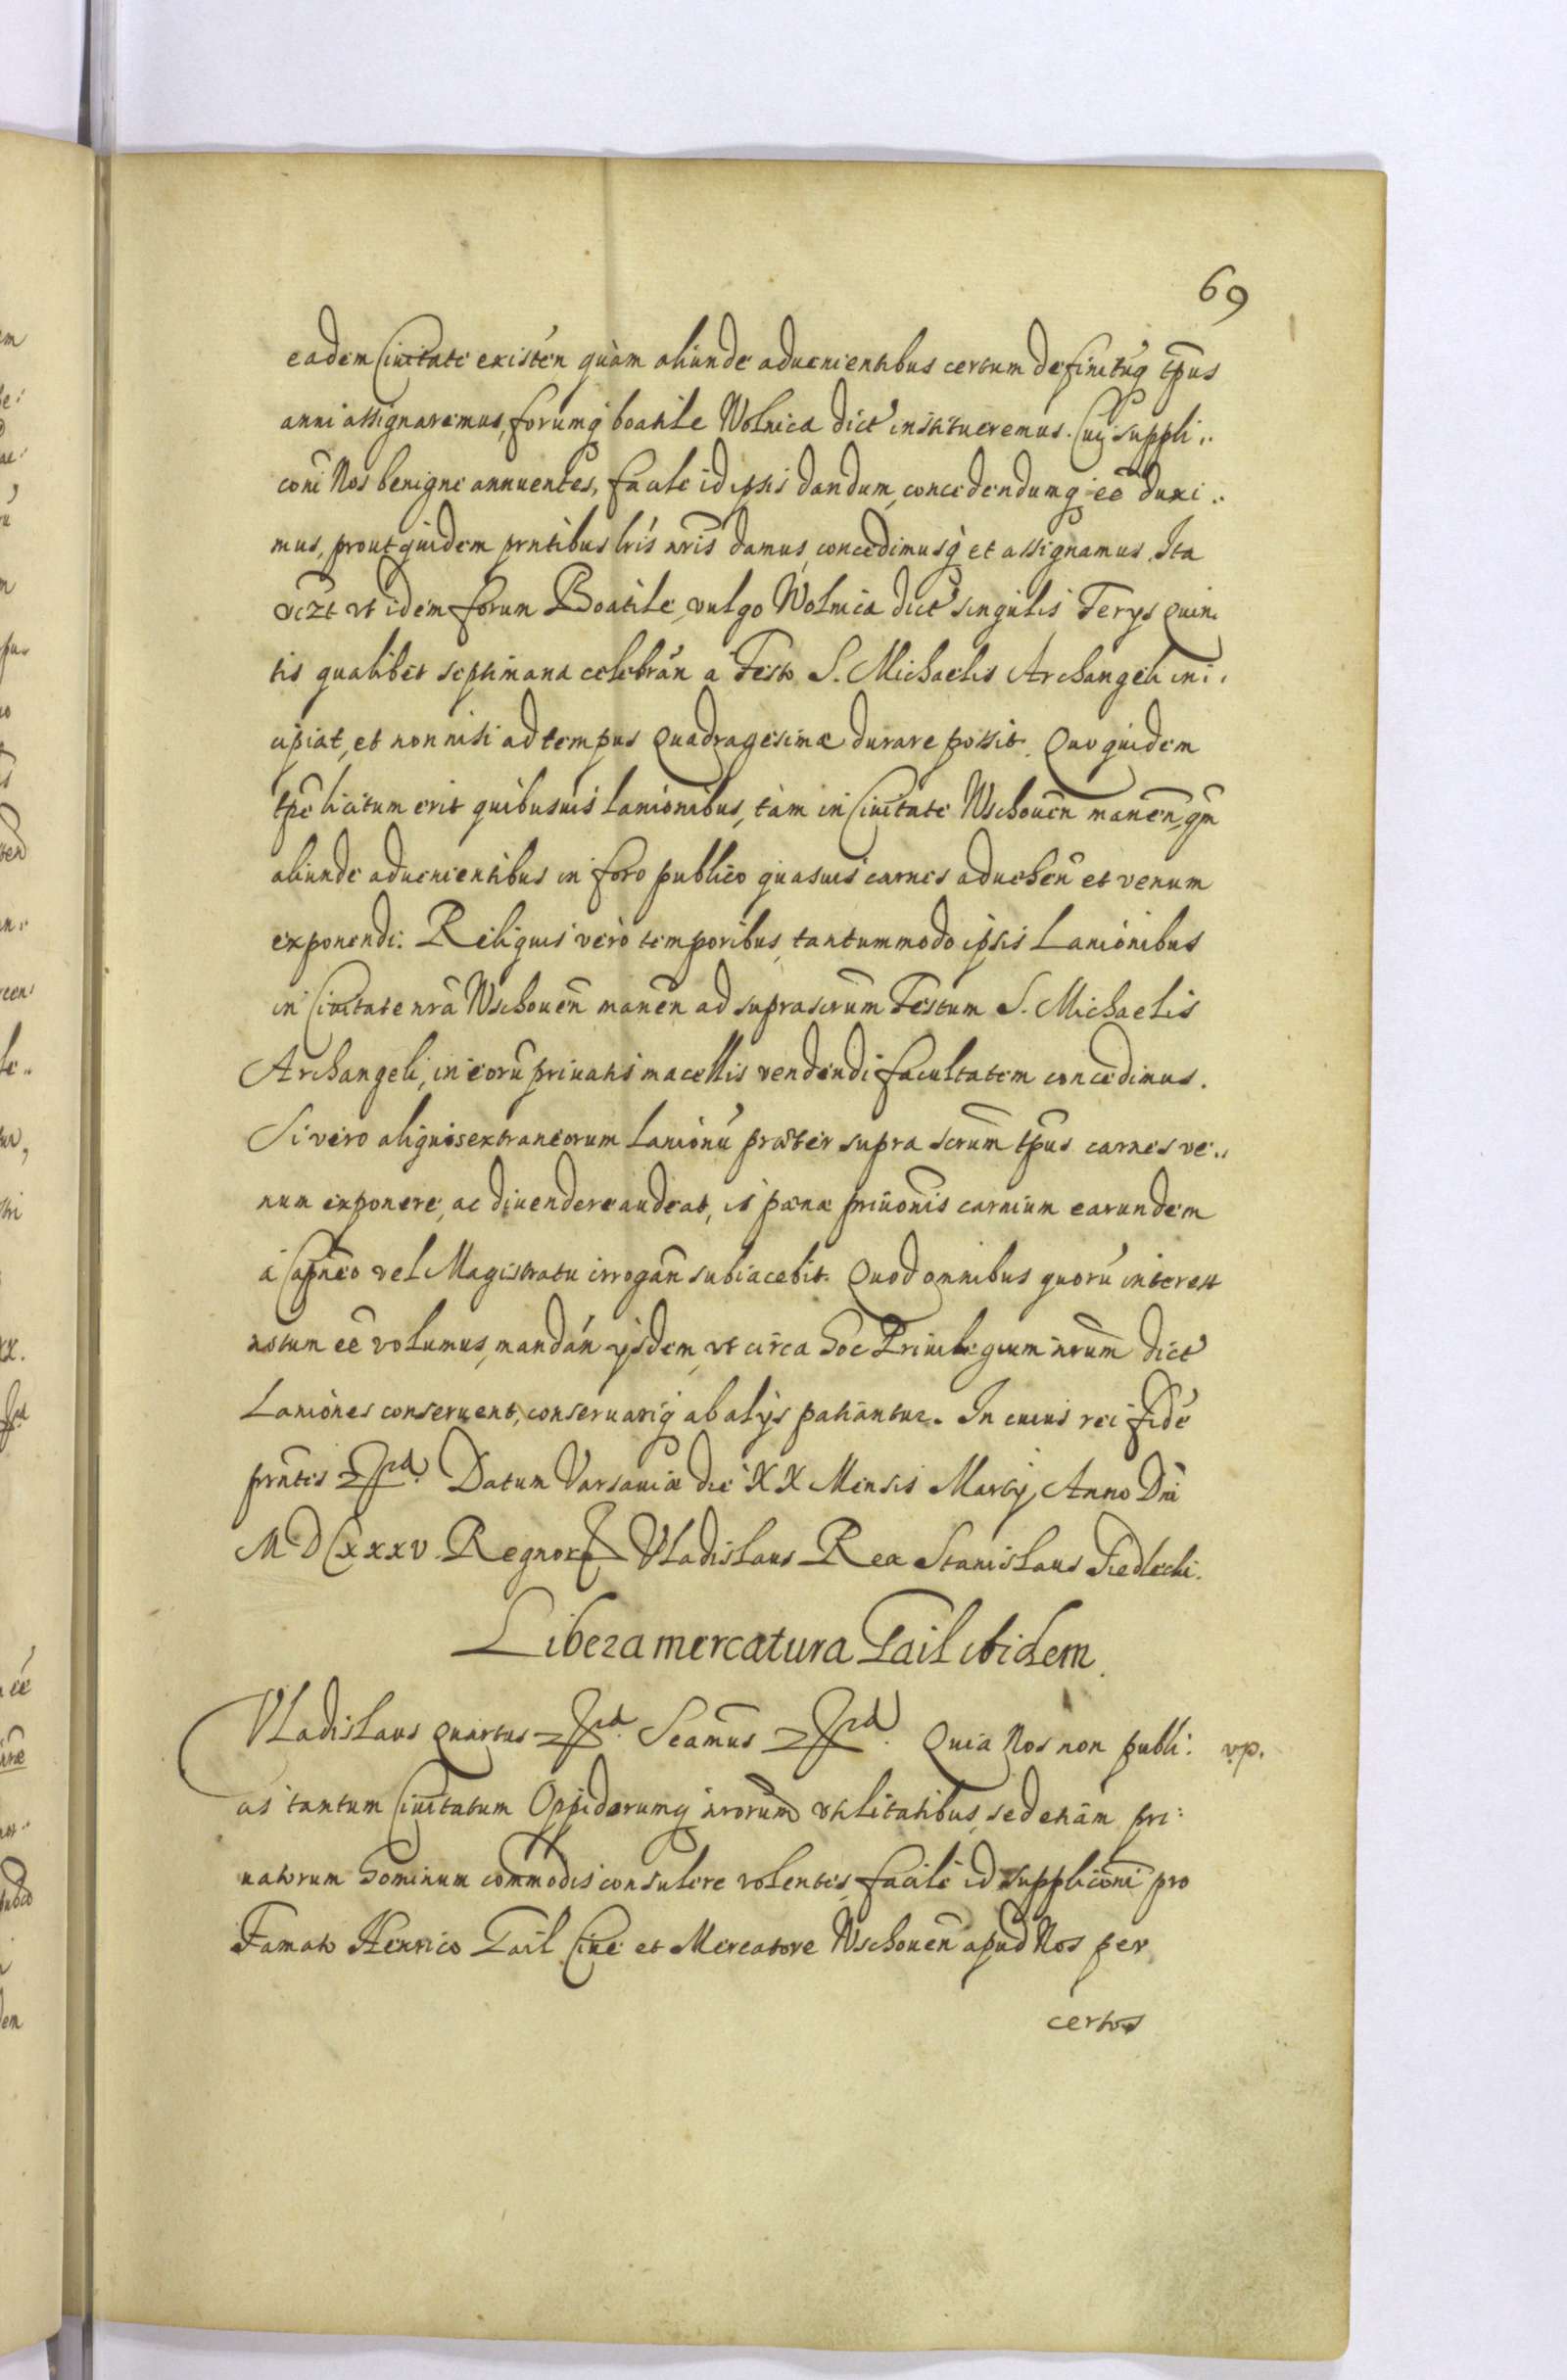 69
eadem Ciuitate existen̄ quàm aliunde aduenientibus certum definitūq̨ tp̄us
anni assignaremus, forumq̨ boatile Wolnica dict' institueremus. Cui suppli..
coni Nos benigne annuentes, facile id ipsis dandum, concedendumq̨ eē duxi..
mus, prout quidem prntibus lris nris damus, concedimusq̨ et assignamus. Ita
vizt vt idem forum Boatile, vulgo Wolnica dict' singulis Ferys quin.
tis qualibet septimana celebrán a Festo S. Michaelis Archangeli in i.
cipiat, et non nisi ad tempus Quadragesimæ durare possit. Quo quidem
tp̄e licitum erit quibusuis Lanionibus, tàm in Ciuitate Wschouen̄ manen̄, qm̄
aliunde aduenientibus in foro publico quasuis carnes aduehen̄ et venum
exponendi. Reliquis verò temporibus, tantummodo ipsis Lanionibus
in Ciuitate nrā Wschouen̄ manen̄ ad suprascrūm Festum S. Michaelis
Archangeli, in eorū priuatis macellis vendendi facultatem concedimus.
Si vero aliquis extraneorum Lanionū præter supra scrūm tp̄us carnes ve..
num exponere, ac diuendere audeat, is pæna priuōnis carnium earundem
à Capneo vel Magistratu irrogan̄ subiacebit. Quod omnibus quorū interest
notum eē volumus, mandán ijsdem, vt circa hoc Priuilegium nrūm dict'
Laniones conseruent, conseruariq̨ ab alijs patiantur. In cuius rei fidē
prn̄tes Datum Varsauiæ die XX Mensis Martij, Anno Dni
MDCxxxv. Regnor Vladislaus Rex Stanislaus Siedlecki.
Libera mercatura Tail ibidem.
Vladislaus Quartus Seamūs Quia Nos non publi: vp.
cis tantum Ciuitatum Oppidorumq̨ nrorūm vtilitatibus, sed etiām pri:
uatorum hominum commodis consulere volentes, facile id suppliconi pro
Famato Henrico Tail Ciue et Mercatore Wschouen̄ apud Nos per
certos